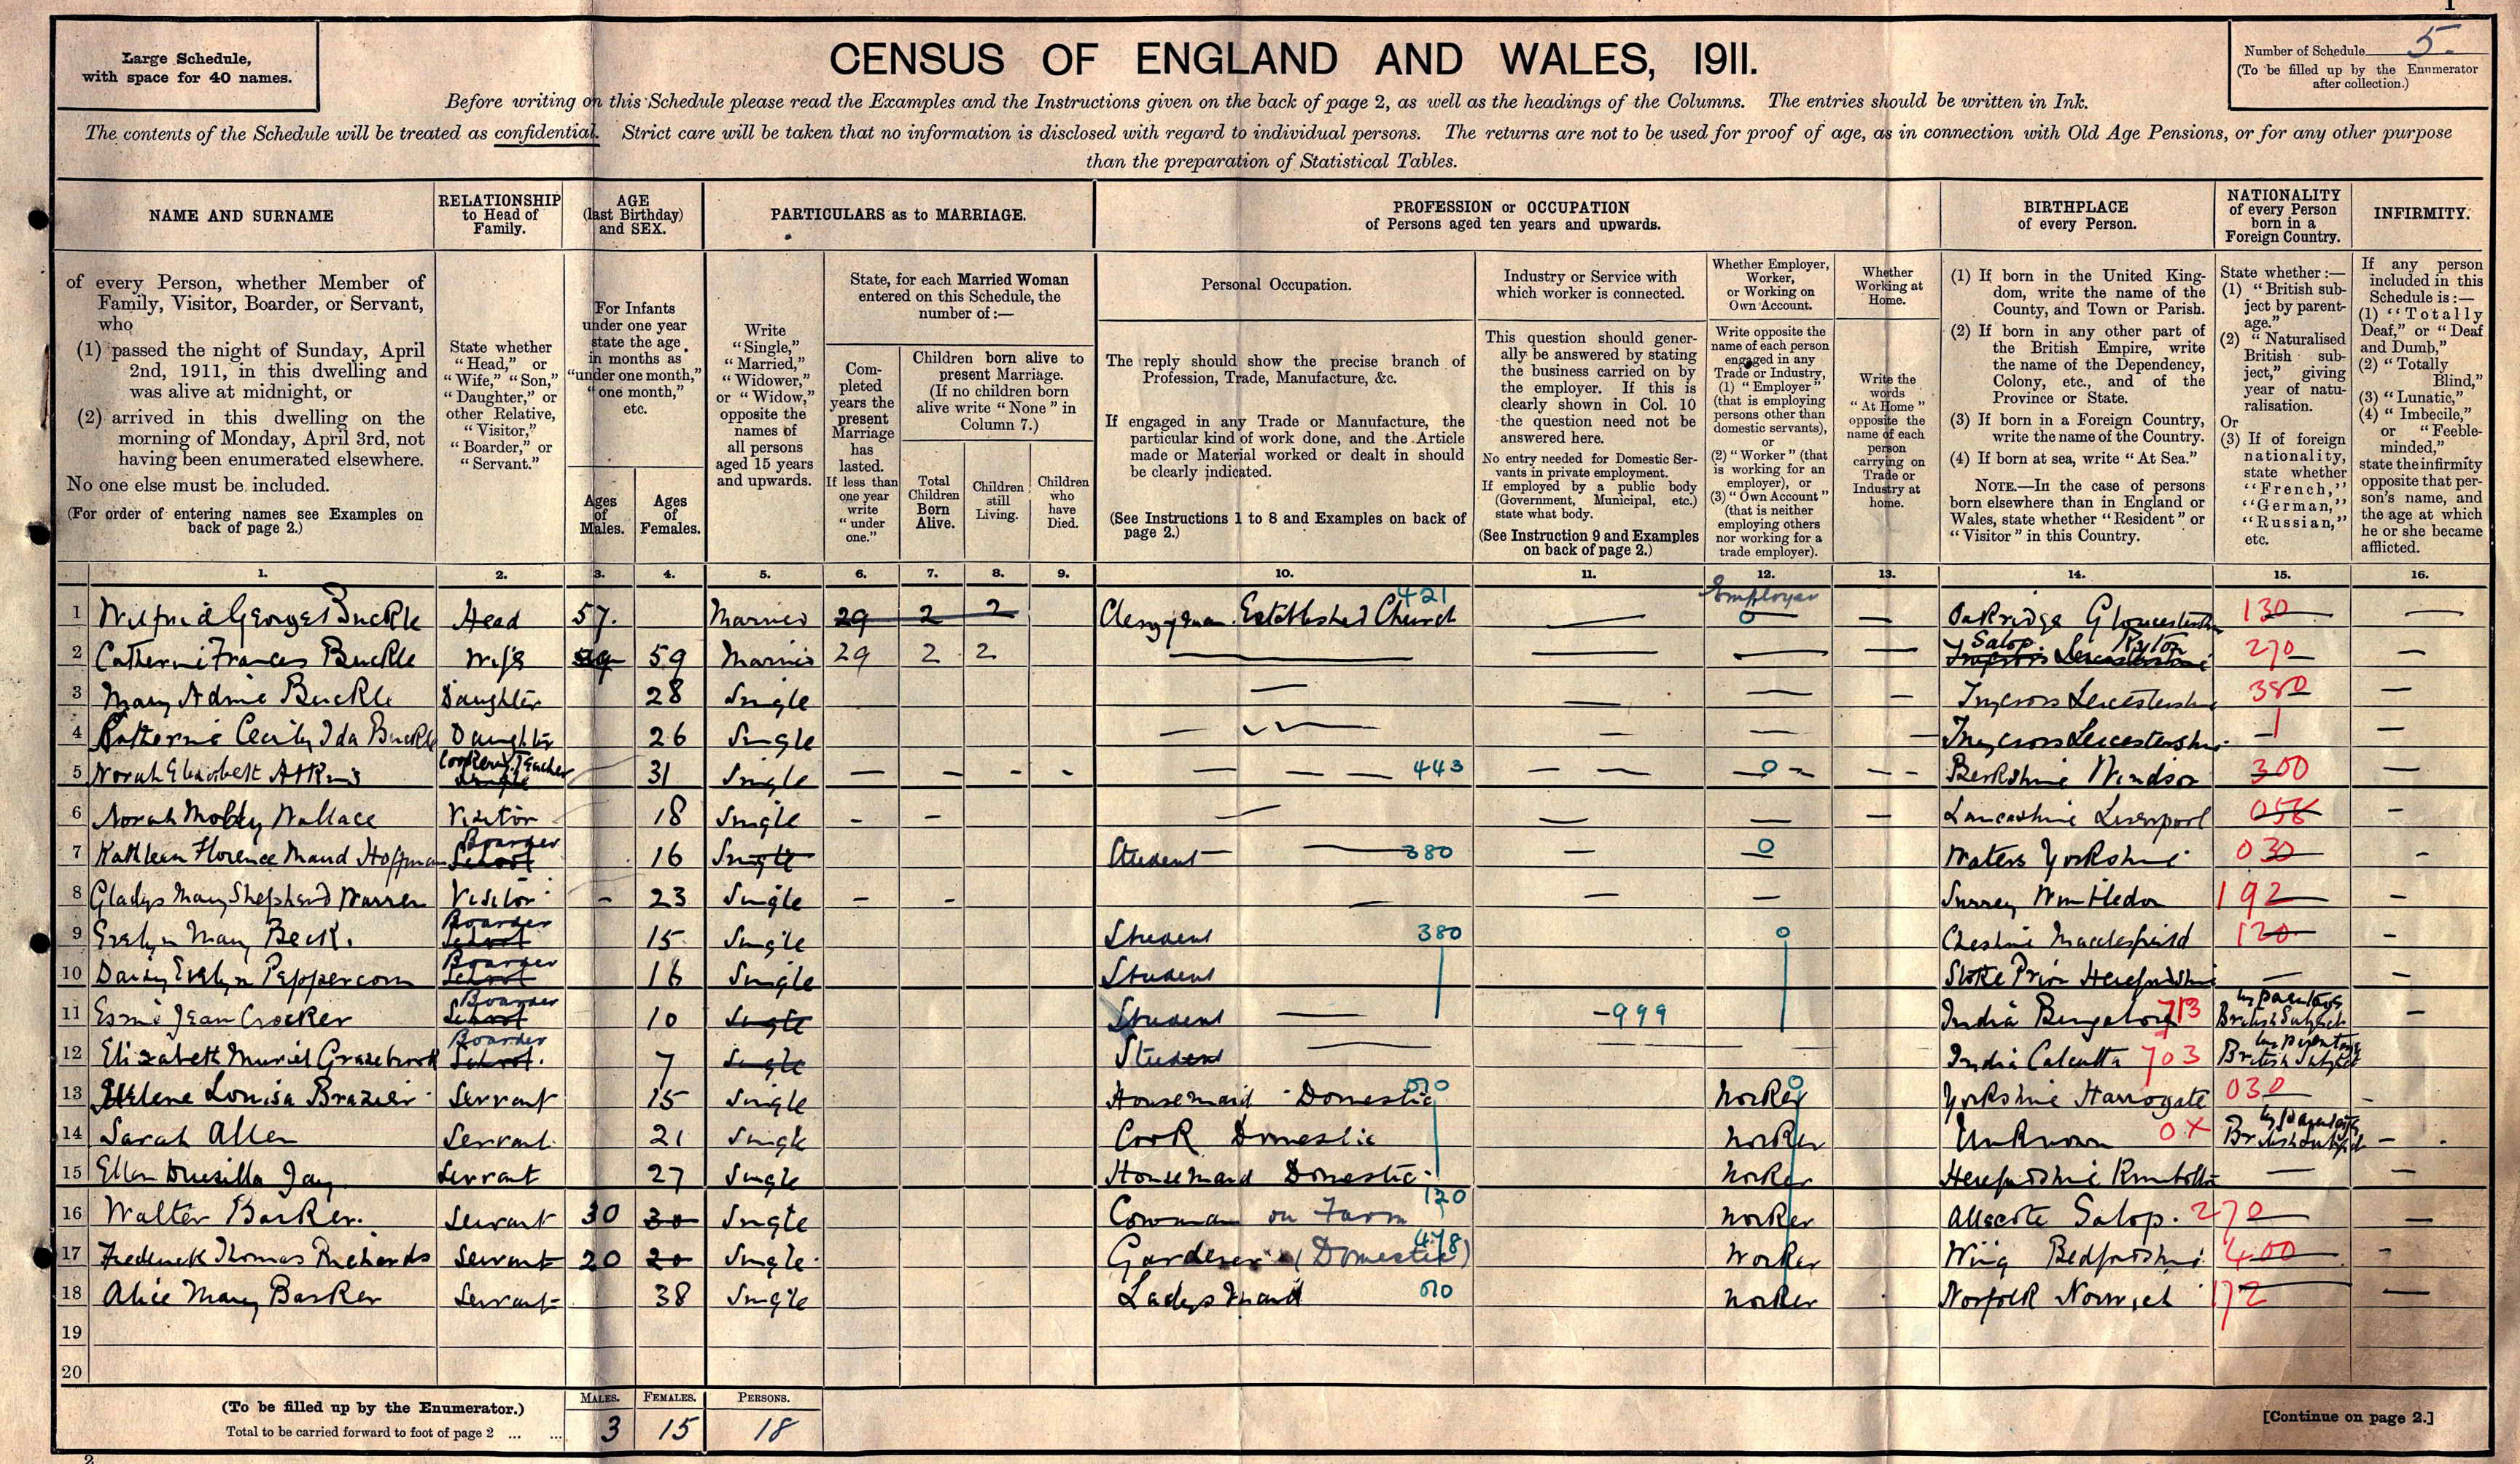 1
Large Schedule,
with space for 40 names.
CENSUS OF ENGLAND AND WALES, 1911.
Number of Schedule 5.
(To be filled up by the Enumerator
after collection.)
Before writing on this Schedule please read the Examples and the Instructions given on the back of page 2, as well as the headings of the Columns. The entries should be written in Ink.
The contents of the Schedule will be treated as confidential. Strict care will be taken that no information is disclosed with regard to individual persons. The returns are not to be used for proof of age, as in connection with Old Age Pensions, or for any other purpose
than the preparation of Statistical Tables.
NAME AND SURNAME
of every Person, whether Member of
Family, Visitor, Boarder, or Servant,
who
(1) passed the night of Sunday, April
2nd, 1911, in this dwelling and
was alive at midnight, or
(2) arrived in this dwelling on the
morning of Monday, April 3rd, not
having been enumerated elsewhere.
No one else must be included.
(For order of entering names see Examples on
back of page 2.)
RELATIONSHIP
to Head of
Family.
State whether
"Head," or
"Wife," "Son,"
"Daughter," or
other Relative,
"Visitor,"
"Boarder," or
"Servant."
AGE
(last Birthday)
and SEX.
For Infants
under one year
state the age
in months as
"under one month,"
"one month,"
etc.
Ages
of
Males.
Ages
of
Females.
PARTICULARS as to MARRIAGE.
Write
"Single,"
"Married,"
"Widower,"
or "Widow,"
opposite the
names of
all persons
aged 15 years
and upwards.
State, for each Married Woman
entered on this Schedule, the
number of:—
Com-
pleted
years the
present
Marriage
has
lasted.
If less than
one year
write
"under
one."
Children born alive to
present Marriage.
(If no children born
alive write "None" in
Column 7.)
Total
Children
Born
Alive.
Children
still
Living.
Children
who
have
Died.
PROFESSION or OCCUPATION
of Persons aged ten years and upwards.
Personal Occupation.
The reply should show the precise branch of
Profession, Trade, Manufacture, &c.
If engaged in any Trade or Manufacture, the
particular kind of work done, and the Article
made or Material worked or dealt in should
be clearly indicated.
(See Instructions 1 to 8 and Examples on back of
page 2.)
Industry or Service with
which worker is connected.
This question should gener-
ally be answered by stating
the business carried on by
the employer. If this is
clearly shown in Col. 10
the question need not be
answered here.
No entry needed for Domestic Ser-
vants in private employment.
If employed by a public body
(Government, Municipal, etc.)
state what body.
(See Instruction 9 and Examples
on back of page 2.)
Whether Employer,
Worker,
or Working on
Own Account.
Write opposite the
name of each person
engaged in any
Trade or Industry,
(1) "Employer"
(that is employing
persons other than
domestic servants),
or
(2) "Worker" (that
is working for an
employer), or
(3) "Own Account"
(that is neither
employing others
nor working for a
trade employer).
Whether
Working at
Home.
Write the
words
"At Home"
opposite the
name of each
person
carrying on
Trade or
Industry at
home.
BIRTHPLACE
of every Person.
(1) If born in the United King-
dom, write the name of the
County, and Town or Parish.
(2) If born in any other part of
the British Empire, write
the name of the Dependency,
Colony, etc., and of the
Province or State.
(3) If born in a Foreign Country,
write the name of the Country.
(4) If born at sea, write "At Sea."
NOTE.—In the case of persons
born elsewhere than in England or
Wales, state whether "Resident" or
"Visitor" in this Country.
NATIONALITY
of every Person
born in a
Foreign Country.
State whether:—
(1) "British sub-
ject by parent-
age."
(2) "Naturalised
British sub-
ject," giving
year of natu-
ralisation.
Or
(3) If of foreign
nationality,
state whether
"French,"
"German,"
"Russian,"
etc.
INFIRMITY.
If any person
included in this
Schedule is:—
(1) "Totally
Deaf," or "Deaf
and Dumb,"
(2) "Totally
Blind,"
(3) "Lunatic,"
(4) "Imbecile,"
or "Feeble-
minded,"
state the infirmity
opposite that per-
son's name, and
the age at which
he or she became
afflicted.
1. 2. 3. 4. 5. 6. 7. 8. 9. 10. 11. 12. 13. 14. 15. 16.
421 Employer
1 Wilfrid George Buckle Head 57. Married 29 2 2 Clergyman Established Church 0 Oakridge Gloucestershire 130
Salop Ryton
2 Catherine Frances Buckle Wife 59 Married 29 2 2 270
3 Mary Buckle Daughter 28 Single Leicestershire 380
4 Katherine Cecily Ida Buckle Daughter 26 Single Leicestershire
Cookery Teacher
5 Norah Elizabeth Atkins Single 31 Single 443 0 Berkshire Windsor 300
6 Norah Wallace Visitor 18 Single Lancashire Liverpool 056
Boarder
7 Kathleen Florence Maud Hoffman School 16 Single Student 380 0 Yorkshire 030
8 Gladys Mary Shephard Warren Visitor 23 Single Surrey Wimbledon 192
Boarder
9 Evelyn Mary Beck. School 15 Single Student 380 0 Cheshire Macclesfield 120
Boarder
10 Daisy Evelyn Peppercorn School 16 Single Student Stoke Prior Herefordshire
Boarder by parentage
11 Esmé Jean Crocker School 10 Single Student 999 India Bangalore 713 British Subject
Boarder by parentage
12 Elizabeth Muriel Grazebrook School. 7 Single Student India Calcutta 703 British Subject
13 Helene Louisa Brazier Servant 15 Single Housemaid Domestic 010 0 Worker Yorkshire Harrogate 030
by parentage
14 Sarah Allen Servant 21 Single Cook Domestic Worker Unknown 0X British Subject
15 Ellen Drusilla Jay Servant 27 Single Housemaid Domestic Worker Herefordshire Kimbolton
16 Walter Barker. Servant 30 30 Single Cowman on Farm 120 Worker Allscote Salop. 270
17 Frederick Thomas Richards Servant 20 20 Single Gardener (Domestic) 478 Worker Wing Bedfordshire 400
18 Alice Mary Barker Servant 38 Single Ladys Maid 010 Worker Norfolk Norwich 172
19
20
(To be filled up by the Enumerator.)
Total to be carried forward to foot of page 2 ... ...
MALES. FEMALES. PERSONS.
3 15 18
[Continue on page 2.]
2